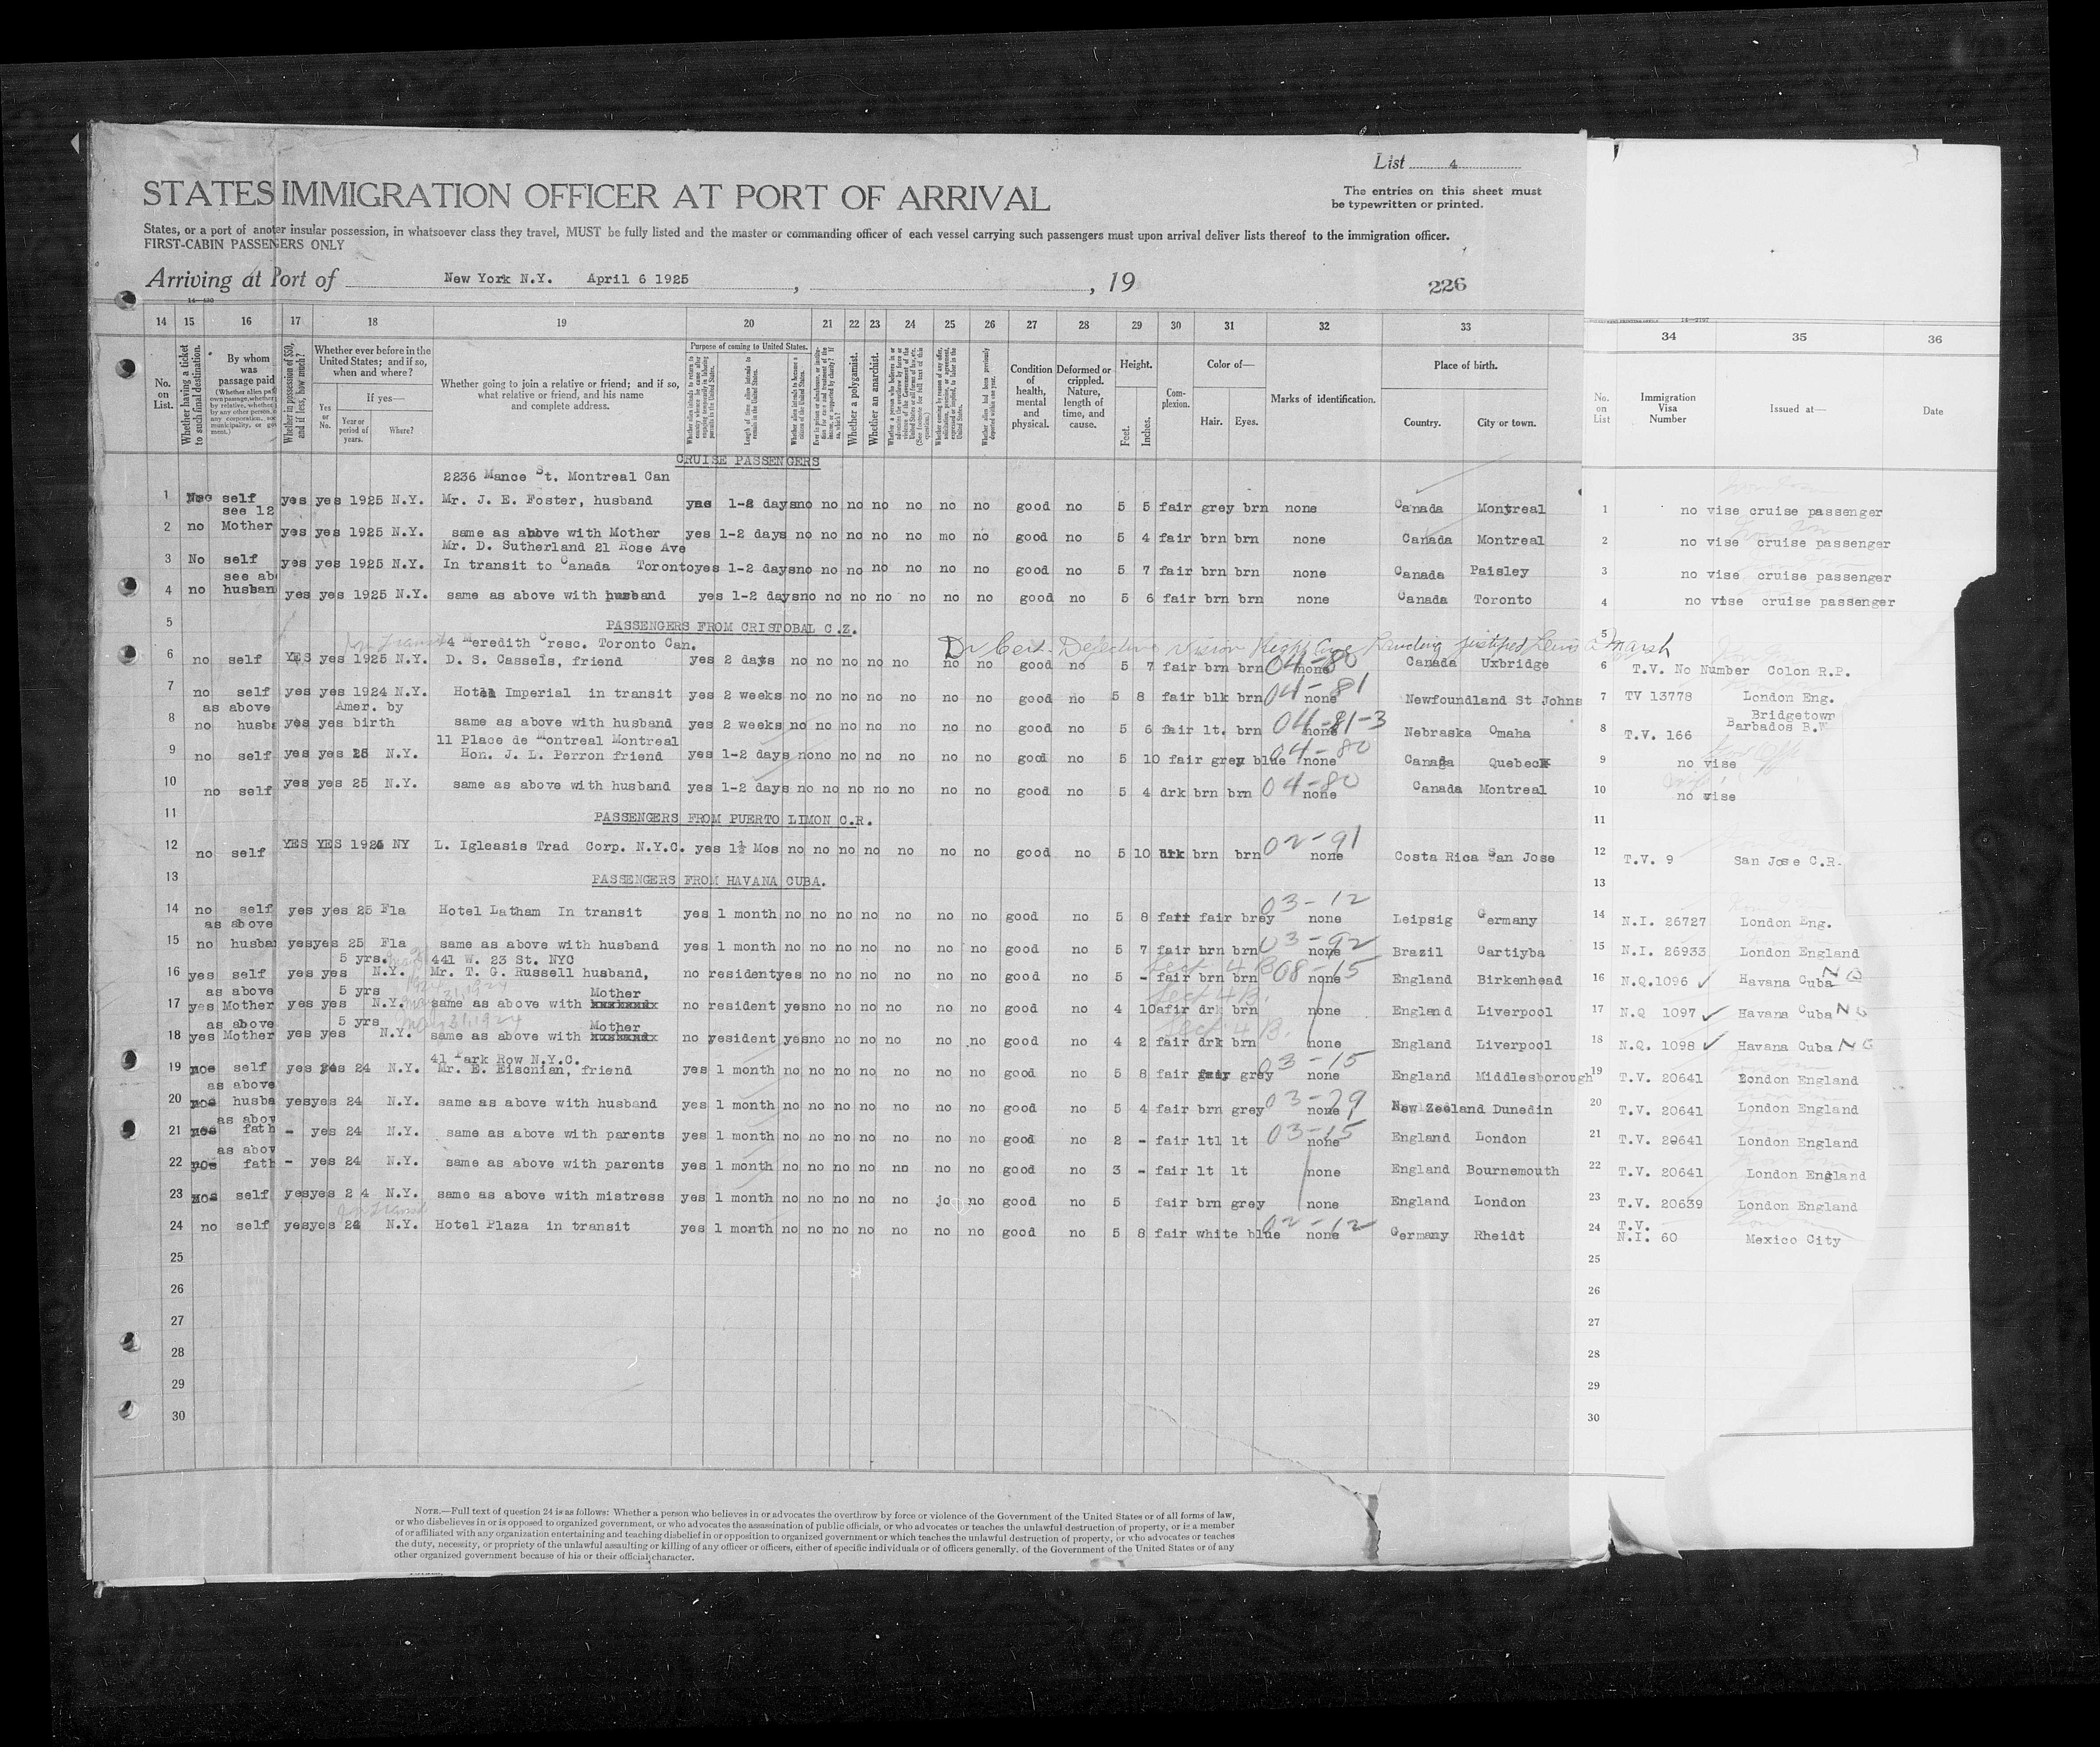 List 4
STATES IMMIGRATION OFFICER AT PORT OF ARRIVAL
The entries on this sheet must
be typewritten or printed.
States, or a port of anoter insular possession, in whatsoever class they travel, MUST be fully listed and the master or commanding officer of each vessel carrying such passengers must upon arrival deliver lists thereof to the immigration officer.
FIRST-CABIN PASSENGERS ONLY
Arriving at Port of New York N.Y. April 6 1925, , 19
226
14 15 16 17 18 19 20 21 22 23 24 25 26 27 28 29 30 31 32 33 34 35 36
No. on List.
Whether having a ticket to such final destination.
By whom was passage paid
Whether in possession of $50, and if less, how much?
Whether ever before in the United States; and if so, when and where?
Yes or No.
If yes—
Year or period of years.
Where?
Whether going to join a relative or friend; and if so, what relative or friend, and his name and complete address.
Purpose of coming to United States.
Whether a polygamist.
Whether an anarchist.
Condition of health, mental and physical.
Deformed or crippled. Nature, length of time, and cause.
Height.
Feet. Inches.
Complexion.
Color of—
Hair. Eyes.
Marks of identification.
Place of birth.
Country. City or town.
No. on List
Immigration Visa Number
Issued at—
Date
CRUISE PASSENGERS
2236 Mance St. Montreal Can
1 self yes yes 1925 N.Y. Mr. J. E. Foster, husband 1-2 days no no no no no no no good no 5 5 fair grey brn none Canada Montreal 1 no vise cruise passenger
see 12
2 no Mother yes yes 1925 N.Y. same as above with Mother yes 1-2 days no no no no no mo no good no 5 4 fair brn brn none Canada Montreal 2 no vise cruise passenger
Mr. D. Sutherland 21 Rose Ave
3 No self yes yes 1925 N.Y. In transit to Canada Toronto yes 1-2 days no no no no no no no good no 5 7 fair brn brn none Canada Paisley 3 no vise cruise passenger
see ab
4 no husban yes yes 1925 N.Y. same as above with husband yes 1-2 days no no no no no no no good no 5 6 fair brn brn none Canada Toronto 4 no vise cruise passenger
5 PASSENGERS FROM CRISTOBAL C.Z. 5
In Transit 4 Meredith Cresc. Toronto Can. Dr Cert. Defective vision Right Eye Landing justified Marsh
6 no self YES yes 1925 N.Y. D. S. Cassels, friend yes 2 days no no no no no no no good no 5 7 fair brn brn 04-80 none Canada Uxbridge 6 T.V. No Number Colon R.P.
7 no self yes yes 1924 N.Y. Hotel Imperial in transit yes 2 weeks no no no no no no no good no 5 8 fair blk brn 04-81 none Newfoundland St Johns 7 TV 13778 London Eng.
as above Amer. by Bridgetown
8 no husba yes yes birth same as above with husband yes 2 weeks no no no no no no no good no 5 6 fair lt. brn 04-81-3 none Nebraska Omaha 8 T.V. 166 Barbados B.W
11 Place de Montreal Montreal
9 no self yes yes 25 N.Y. Hon. J. L. Perron friend yes 1-2 days no no no no no no no good no 5 10 fair grey blue 04-80 none Canada Quebec 9 no vise
10 no self yes yes 25 N.Y. same as above with husband yes 1-2 days no no no no no no no good no 5 4 drk brn brn 04-80 none Canada Montreal 10 no vise
11 PASSENGERS FROM PUERTO LIMON C.R. 11
12 no self YES YES NY L. Igleasis Trad Corp. N.Y.C. yes 1½ Mos no no no no no no no good no 5 10 drk brn brn 02-91 none Costa Rica San Jose 12 T.V. 9 San Jose C.R.
13 PASSENGERS FROM HAVANA CUBA. 13
14 no self yes yes 25 Fla Hotel Latham In transit yes 1 month no no no no no no no good no 5 8 fair fair brey 03-12 none Leipsig Germany 14 N.I. 26727 London Eng.
as above
15 no husba yes yes 25 Fla same as above with husband yes 1 month no no no no no no no good no 5 7 fair brn brn 03-92 none Brazil Cartiyba 15 N.I. 26933 London England
5 yrs. 441 W. 23 St. NYC Sect 4 B
16 yes self yes yes N.Y. Mr. T. G. Russell husband, no resident yes no no no no no no good no 5 - fair brn brn 08-15 none England Birkenhead 16 N.Q.1096 ✓ Havana Cuba NQ
as above 5 yrs May 31, 1924 Mother Sect 4 B.
17 yes Mother yes yes N.Y. same as above with xxxxxxx no resident yes no no no no no no good no 4 10 afir drk brn none England Liverpool 17 N.Q 1097 ✓ Havana Cuba NQ
as above 5 yrs May 31, 1924 Mother Sect 4 B.
18 yes Mother yes yes N.Y. same as above with xxxxxxx no yesident yes no no no no no no good no 4 2 fair drk brn none England Liverpool 18 N.Q. 1098 ✓ Havana Cuba NQ
41 Park Row N.Y.C.
19 self yes 24 N.Y. Mr. E. Eisonian, friend yes 1 month no no no no no no no good no 5 8 fair grey 03-15 none England Middlesborough 19 T.V. 20641 London England
as above
20 husba yes yes 24 N.Y. same as above with husband yes 1 month no no no no no no no good no 5 4 fair brn grey 03-29 none New Zeeland Dunedin 20 T.V. 20641 London England
as abov
21 fath - yes 24 N.Y. same as above with parents yes 1 month no no no no no no no good no 2 - fair ltl lt 03-15 none England London 21 T.V. 20641 London England
as abov
22 fath - yes 24 N.Y. same as above with parents yes 1 month no no no no no no no good no 3 - fair lt lt none England Bournemouth 22 T.V. 20641 London England
23 self yes yes 2 4 N.Y. same as above with mistress yes 1 month no no no no no jo no good no 5 fair brn grey none England London 23 T.V. 20639 London England
In Transit T.V.
24 no self yes yes 24 N.Y. Hotel Plaza in transit yes 1 month no no no no no no no good no 5 8 fair white blue 02-12 none Germany Rheidt 24 N.I. 60 Mexico City
25 25
26 26
27 27
28 28
29 29
30 30
NOTE.—Full text of question 24 is as follows: Whether a person who believes in or advocates the overthrow by force or violence of the Government of the United States or of all forms of law,
or who disbelieves in or is opposed to organized government, or who advocates the assassination of public officials, or who advocates or teaches the unlawful destruction of property, or is a member
of or affiliated with any organization entertaining and teaching disbelief in or opposition to organized government or which teaches the unlawful destruction of property, or who advocates or teaches
the duty, necessity, or propriety of the unlawful assaulting or killing of any officer or officers, either of specific individuals or of officers generally, of the Government of the United States or of any
other organized government because of his or their official character.